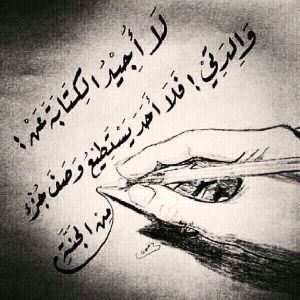 لَا أُجِيْدُ الكِتَابَةَ عَنْ :
وَالِدَتِيْ ! فَلَا أَحَد يَسْتَطِيْعُ وَصْفَ جُزْءٍ
مِنَ الجَنَّةِ